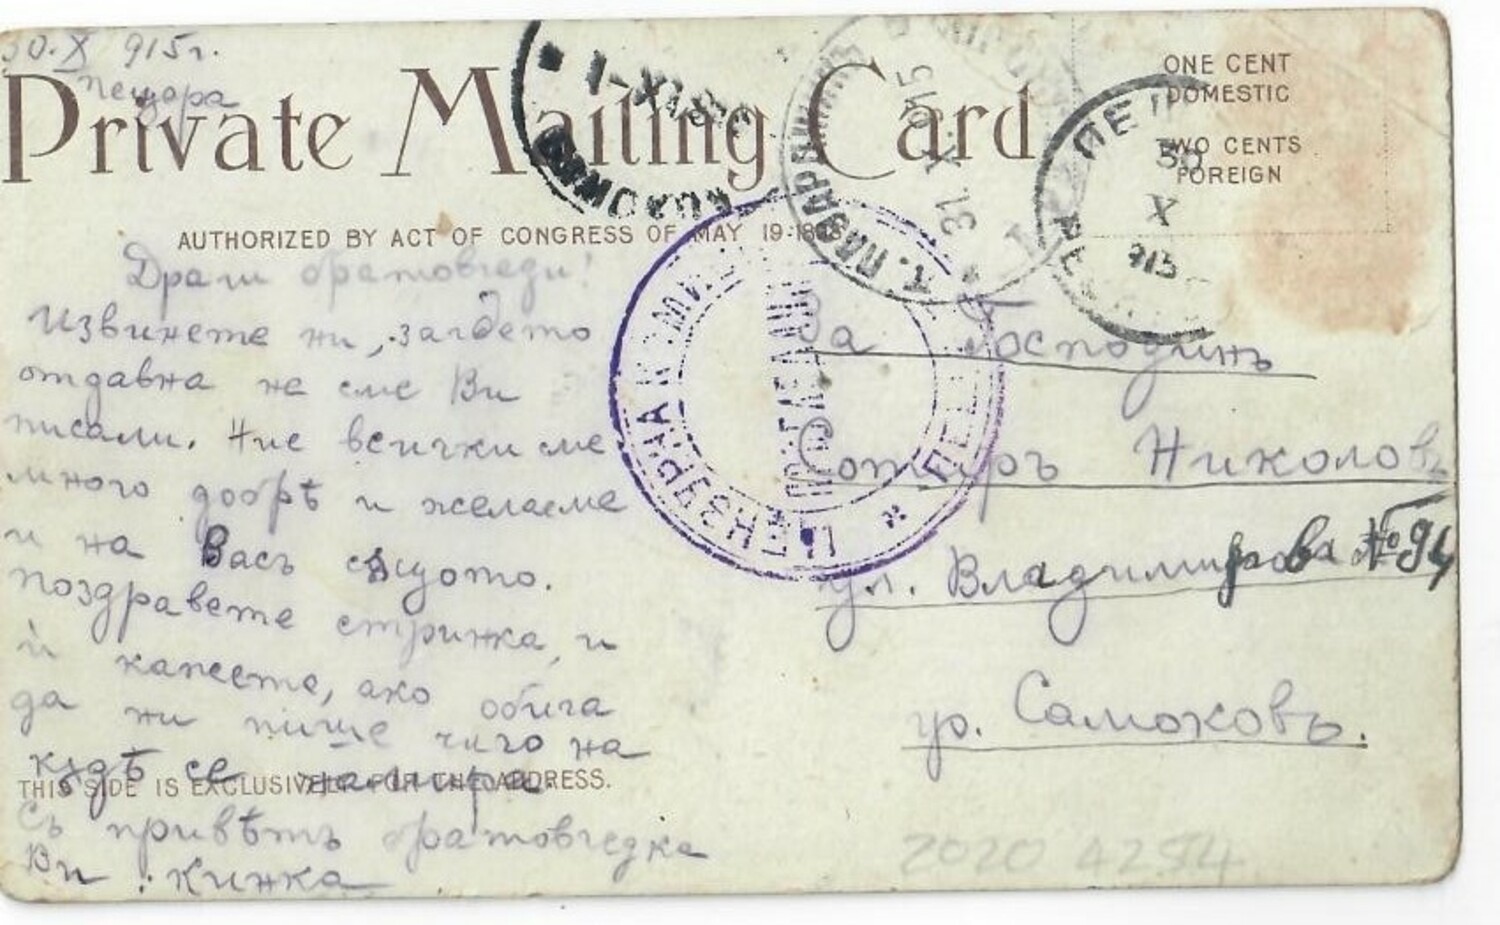 30.X 915г.
Пещера
Private Mailing Card
ONE CENT
DOMESTIC
TWO CENTS
FOREIGN
AUTHORIZED BY ACT OF CONGRESS OF MAY 19·1898
1-XI
Т. ПАЗАРДЖИК
31 X 915
30
X
915
ЦЕНЗУРНА КОМИ
Драги братовчеди!
Извинете ни, загдето
отдавна не сме Ви
писали. Ние всички сме
много добрѣ и желаеме
и на Васъ същото.
Поздравете стринка, и
ѝ кажете, ако обича
да ни пише чичо на
кѫдѣ се намира.
THIS SIDE IS EXCLUSIVELY FOR THE ADDRESS.
Съ привѣтъ братовчедка
Ви: Кинка
За Господинъ
Сотиръ Николовъ
ул. Владимирова №94
гр. Самоковъ.
2020 4254